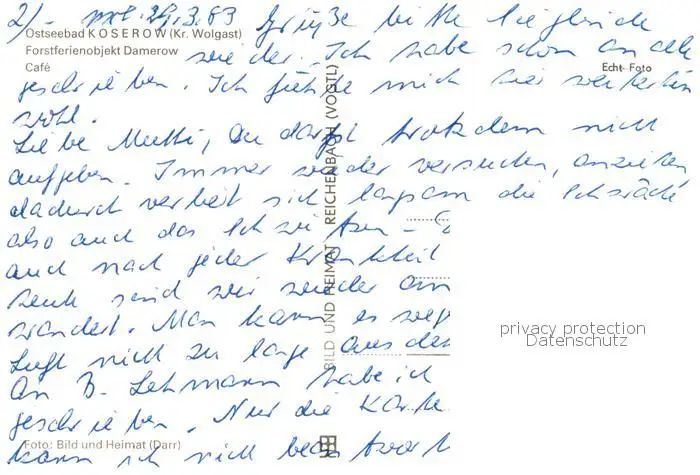 2/- mit. 29.3.83 Grüße bitte
Ostseebad KOSEROW (Kr. Wolgast)
Forstferienobjekt Damerow
Café
wieder. Ich habe schon an alle
Echt Foto
geschrieben. Ich fühle mich hier weiterhin
wohl.
Liebe Mutti, Du darfst trotzdem nicht
aufgeben. Immer wieder versuchen, anziehen
dadurch verliert sich langsam die Schwäche
also auch das Schwitzen -
auch nach jeder Krankheit
heute sind wir wieder
wandert. Man kann es weg
Luft nicht zu lange aus
An B. Lehmann habe ich
geschrieben. Nur die Karte
kann ich nicht beantwort
BILD UND HEIMAT REICHENBACH (VOGTL)
Foto: Bild und Heimat (Darr)
privacy protection
Datenschutz